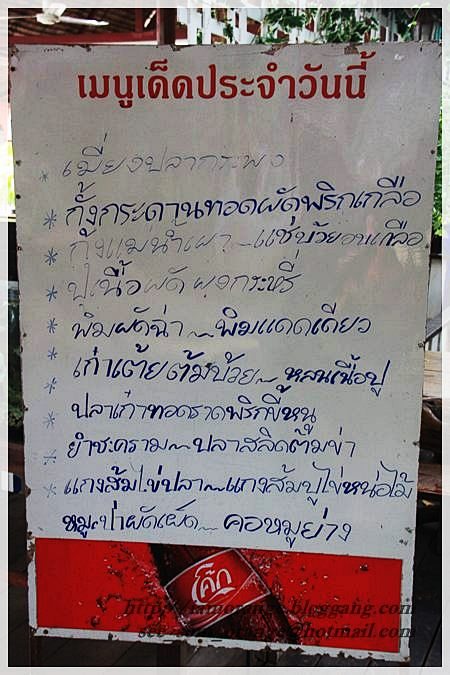 เมนูเด็ดประจำวันนี้
* เมี่ยงปลากระพง
* กั้งกระดานทอดผัดพริกเกลือ
* กุ้งแม่น้ำเผา ~ แช่บ๊วยอบเกลือ
* ปูเนื้อผัดผงกระหรี่
* พิมผัดฉ่า ~ พิมแดดเดียว
* เก๋าเต้ยต้มบ๊วย ~ หลนเนื้อปู
* ปลาเก๋าทอดราดพริกขี้หนู
* ยำชะคราม ~ ปลาสลิดต้มข่า
* แกงส้มไข่ปลา ~ แกงส้มปูไข่หน่อไม้
หมูป่าผัดเผ็ด ~ คอหมูย่าง
โค้ก